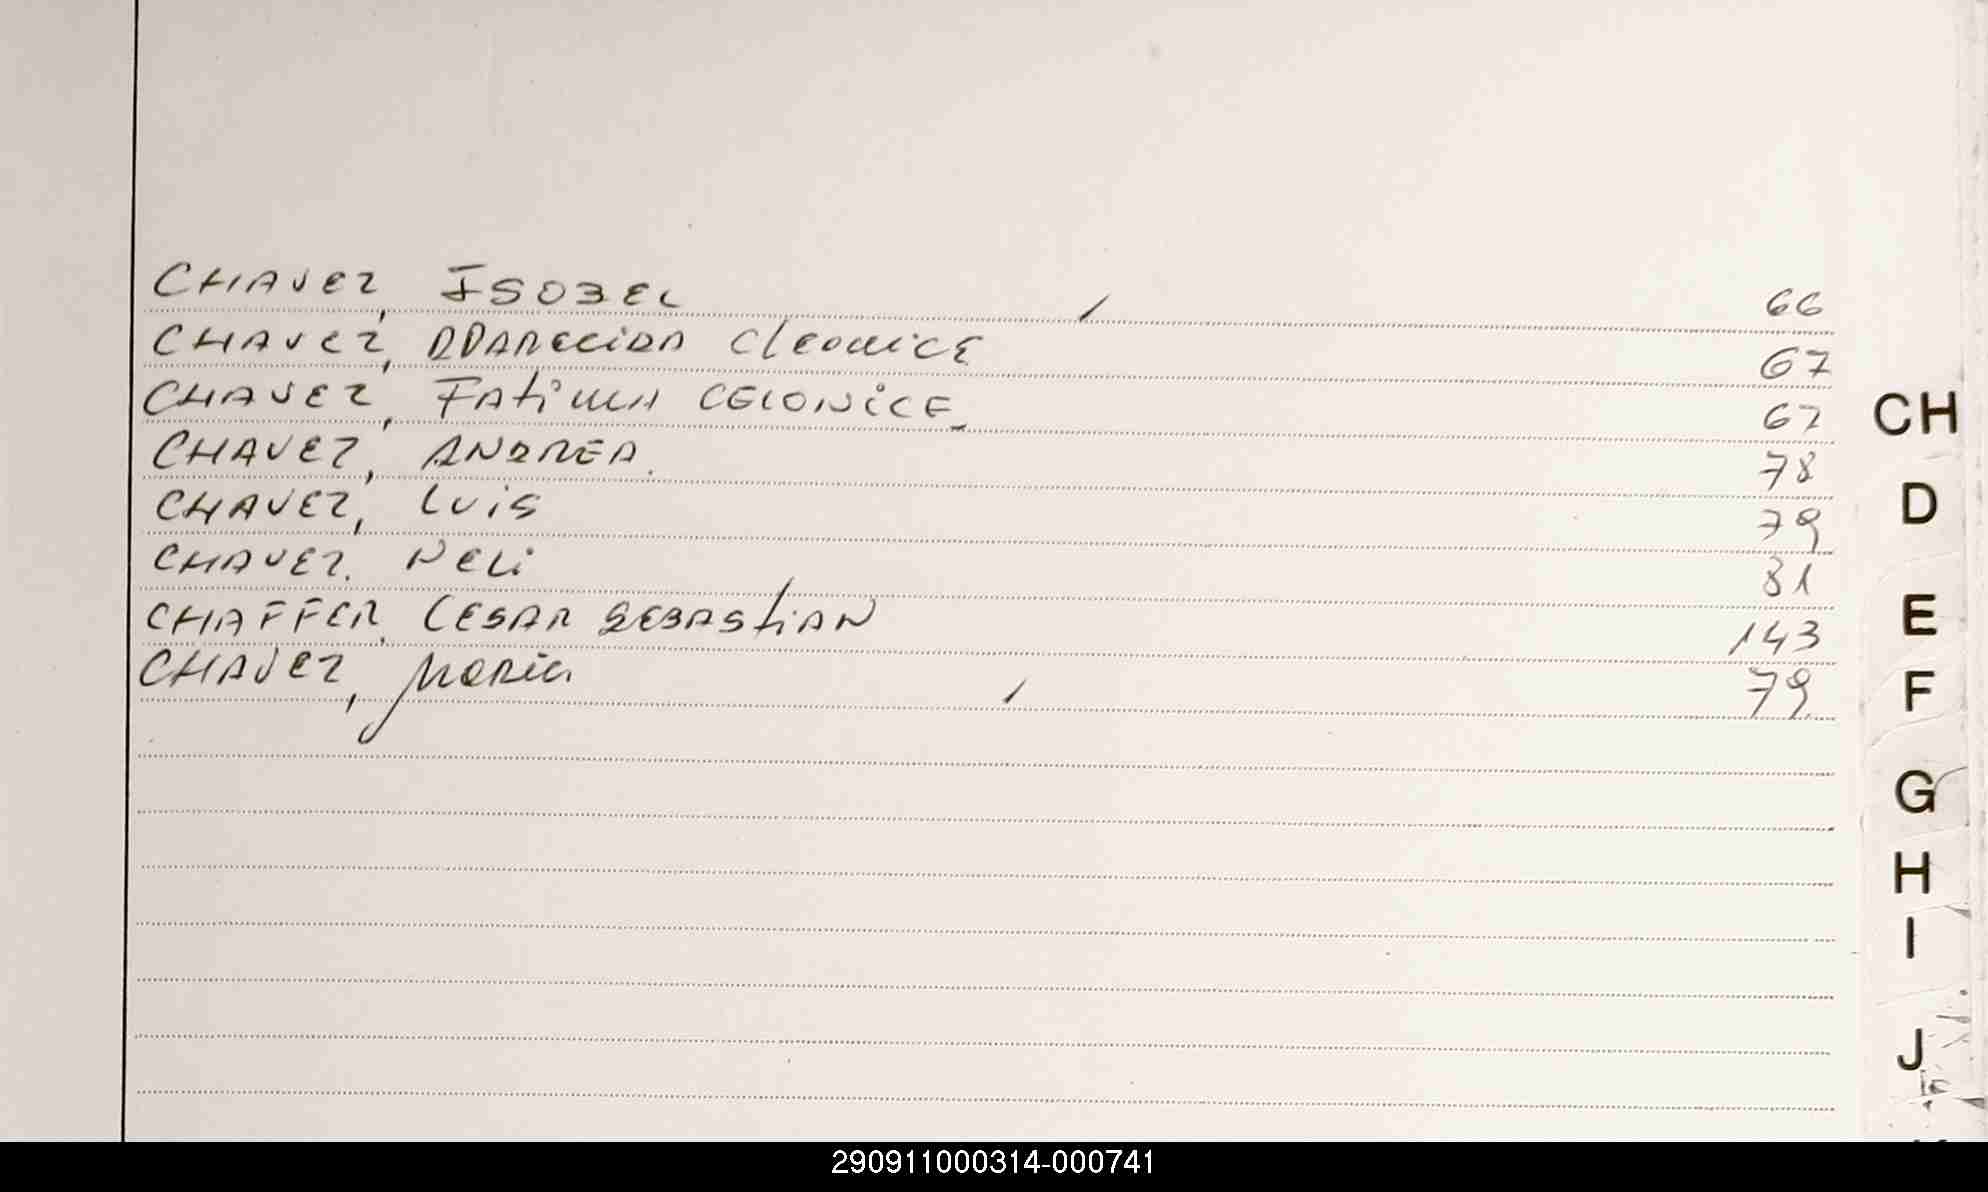 CHAVEZ, ISOBEL 66
CHAVEZ, APARECIDA Cleonice 67
CHAVEZ, FAtimA CELONiCE 67
CHAVEZ, ANDREA. 78
CHAVEZ, Luis 79
CHAVEZ. NELi 81
CHAFFER, CESAR SEBAStiAN 143
CHAVEZ, MARIA 79
CH
D
E
F
G
H
I
J
290911000314-000741